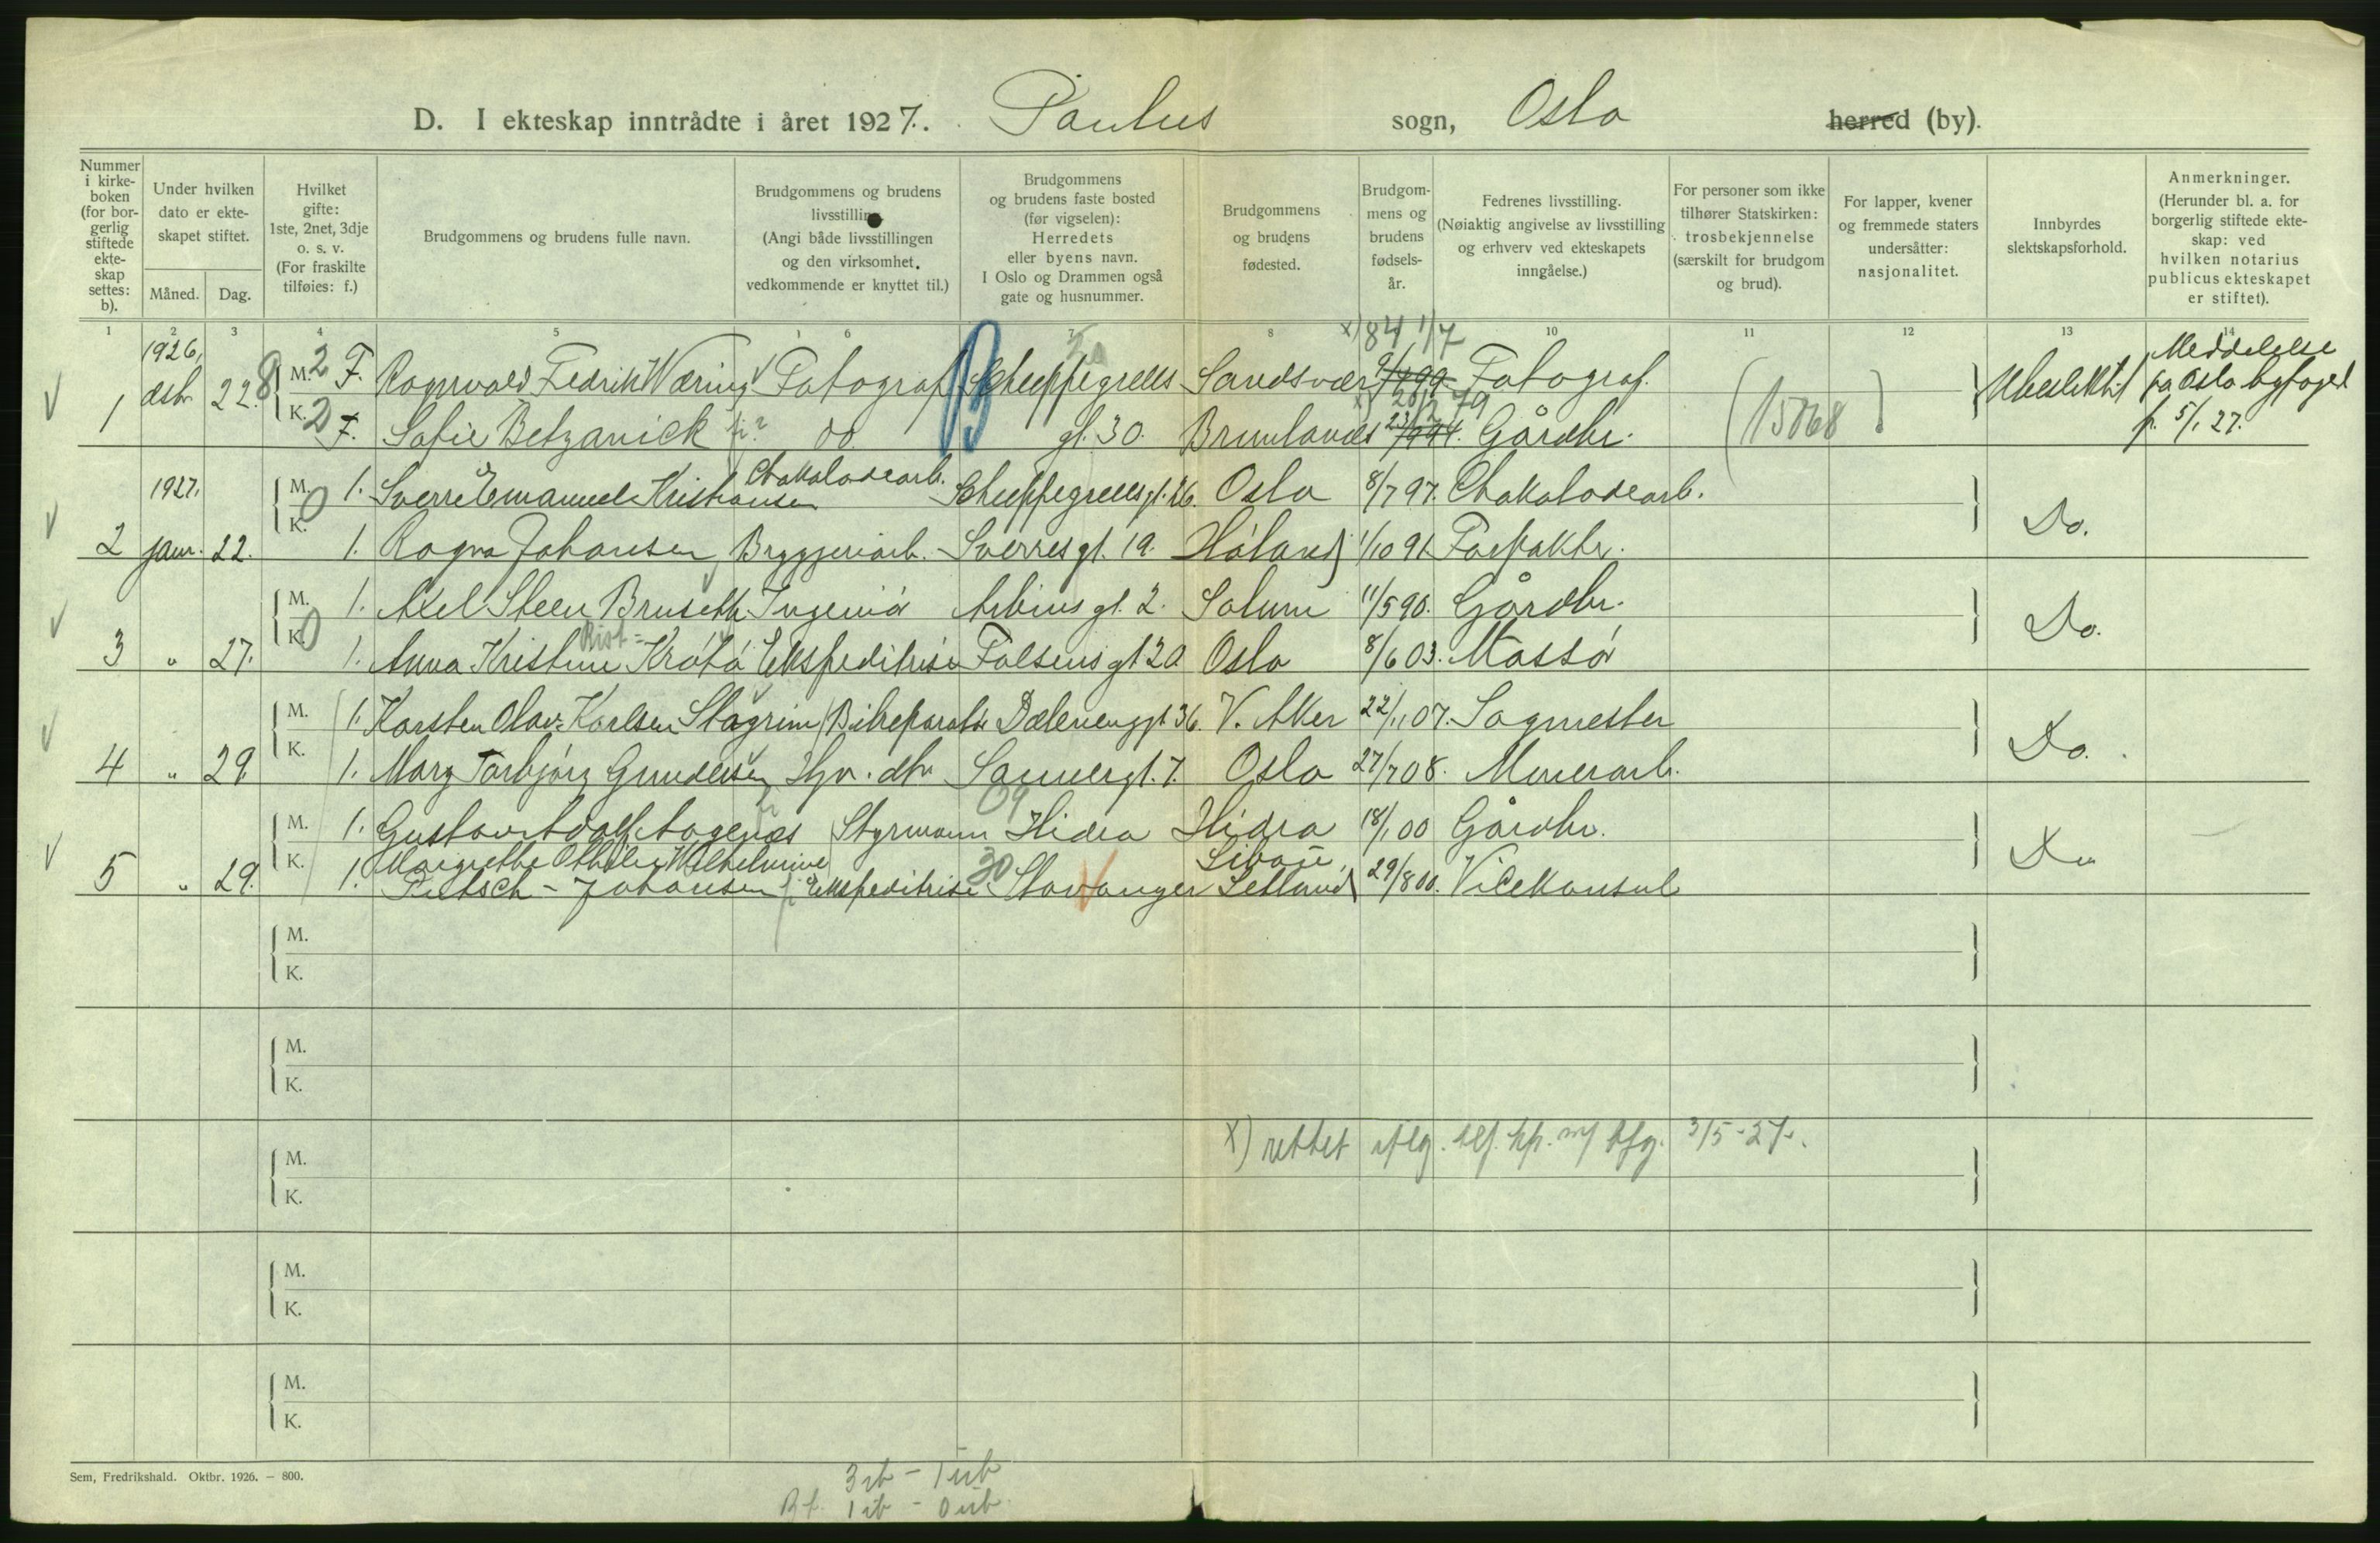 D. I ekteskap inntrådte i året 1927. Paulus sogn, Oslo herred (by).
Nummer i kirkeboken (for borgerlig stiftede ekteskap settes: b).
Under hvilken dato er ekteskapet stiftet.
Måned. Dag.
Hvilket gifte: 1ste, 2net, 3dje o. s. v. (For fraskilte tilføies: f.)
Brudgommens og brudens fulle navn.
Brudgommens og brudens livsstilling. (Angi både livsstillingen og den virksomhet, vedkommende er knyttet til.)
Brudgommens og brudens faste bosted (før vigselen): Herredets eller byens navn. I Oslo og Drammen også gate og husnummer.
Brudgommens og brudens fødested.
Brudgommens og brudens fødselsår.
Fedrenes livsstilling. (Nøiaktig angivelse av livsstilling og erhverv ved ekteskapets inngåelse.)
For personer som ikke tilhører Statskirken: trosbekjennelse (særskilt for brudgom og brud).
For lapper, kvener og fremmede staters undersåtter: nasjonalitet.
Innbyrdes slektskapsforhold.
Anmerkninger. (Herunder bl. a. for borgerlig stiftede ekteskap: ved hvilken notarius publicus ekteskapet er stiftet).
1 2 3 4 5 6 7 8 10 11 12 13 14
1926, x) 84 1/7 Meddelelse
M. 2 F. Ragnvald Fedrik Wæring Fotograf Scheppegrells Sandsvær Fotograf. Ubeslektet fra Oslo byfoged
1 desbr 22. 8 K. 2 F. Sofie Betzanick do. gt. 30. Brunlanes 23/2 94. Gårdbr. (15068) f. 5/1 27.
1927. M. 0 1. Sverre Emanuel Kristiansen Chokoladearb. Scheppegrellsgt. 26. Oslo 8/7 97. Chokoladearb. Do.
2 janr. 22. K. 1. Ragna Johansen Bryggeriarb. Sverresgt. 19. Høland 1/10 91 Forpakter.
M. 0 1. Axel Steen Bruseth Ingeniør Arbinsgt. 2. Solum 11/5 90. Gårdbr. Do.
3 " 27. K. 1. Anna Kristine Krøtø Ekspeditrise Falsensgt 20 Oslo 8/6 03. Massør
M. 1. Karsten Olav Karlsen Stagrim Bilreparatør Dælenenggt 36. V. Aker 22/1 07. Sagmester Do.
4 " 29 K. 1. Mary Torbjørg Gundersen Hjv. dtr Sannergt. 7. Oslo 27/7 08. Murerarb.
M. 1. Gustav Adolf Aagenæs Styrmann Hidra Hidra 18/1 00 Gårdbr. Do
Margrethe Othilie Wilhelmine Libau,
5 " 29. K. 1. Pietsch - Johansen Ekspeditrise Stavanger Letland 29/8 00. Visekonsul
M.
K.
M.
K.
x) rettet iflg. tlf. 3/5-27.
M.
K.
M.
K.
M.
K.
Sem, Fredrikshald. Oktbr. 1926. – 800.
3 ib - 1 uib
Bf. 1 ib - 0 uib.